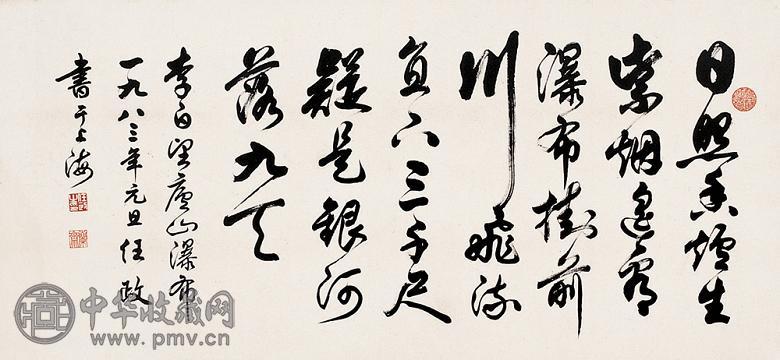 日照香爐生
紫烟遥看
瀑布掛前
川飛流
直下三千尺
疑是銀河
落九天
李白望廬山瀑布
一九八三年元旦任政
書于上海
中华收藏网
www.pmv.cn